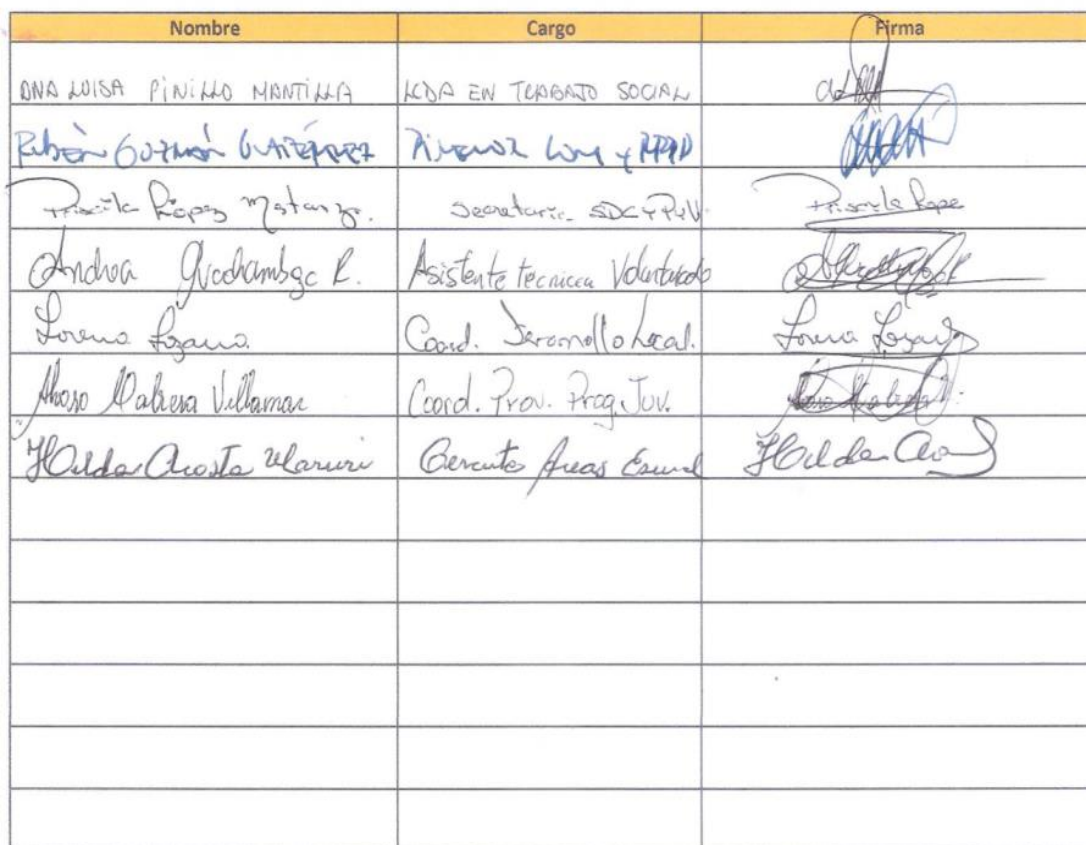 Nombre Cargo Firma
ANA LUISA PINILLO MANTILLA LCDA EN TRABAJO SOCIAL
Rubén GUZMÁN GUTIÉRREZ
Priscila López Matanzo. Secretaria SDC y P y V. Priscila Lope
Andrea R. Asistente técnica Voluntariado
Lorena Lozano. Coord. Desarrollo Local. Lorena Lozano
Alvaro Villamar Coord. Prov. Prog. Juv.
Hilda Acosta Gerente Areas Hilda